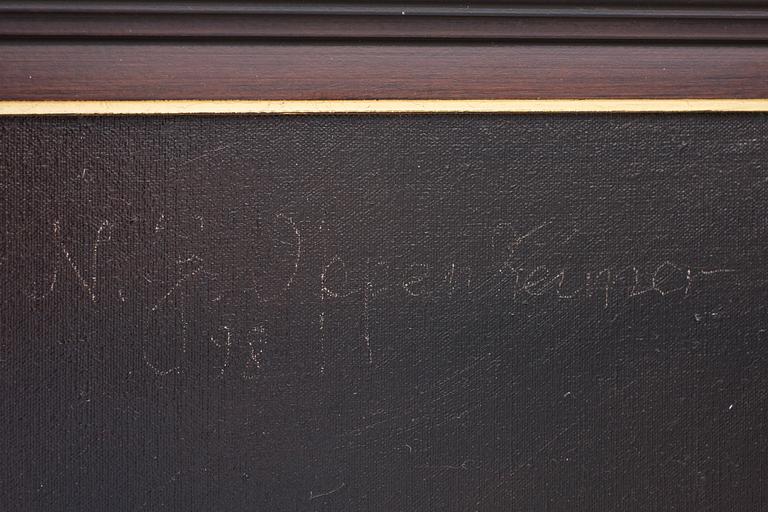 N. F. Oppenheimer
98